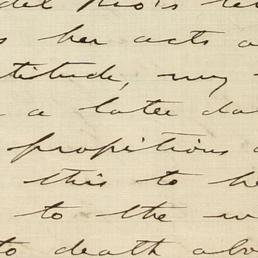 her acts
titude, my
a later da
propitious
this to he
to the w
to death abo